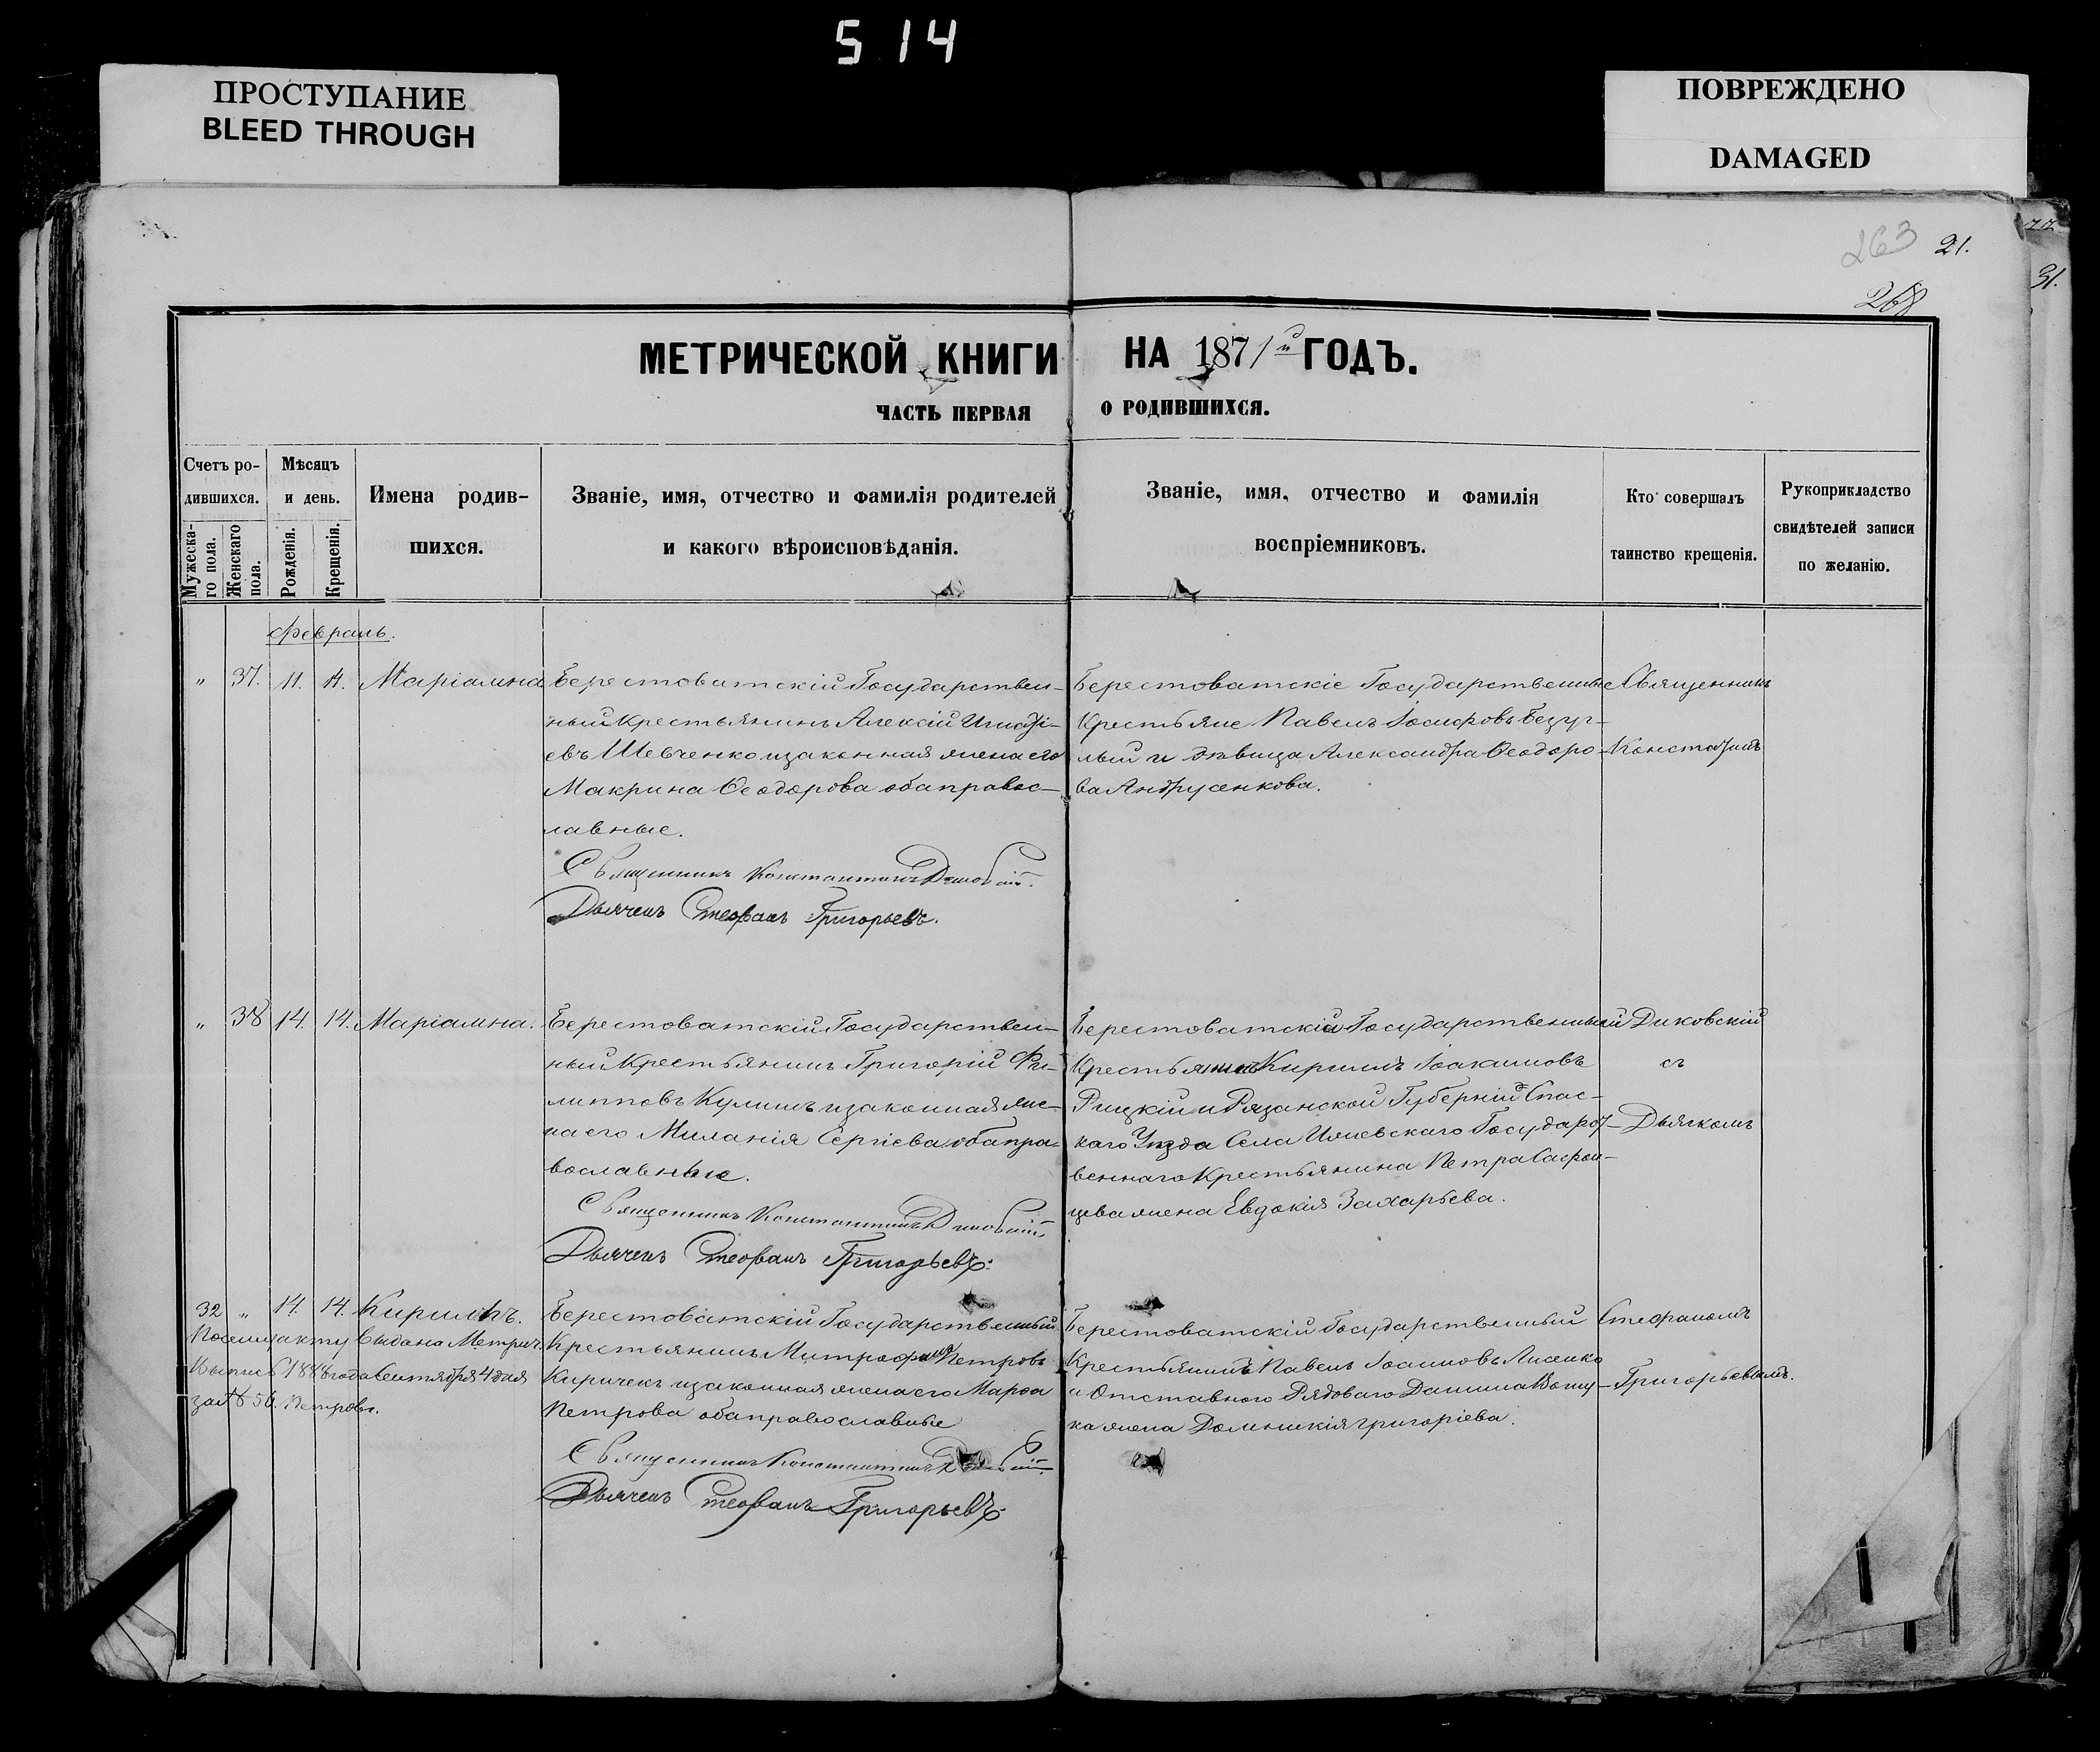 5 14
ПРОСТУПАНИЕ
BLEED THROUGH
ПОВРЕЖДЕНО
DAMAGED
263 21.
268
22
31.
МЕТРИЧЕСКОЙ КНИГИ НА 1871й ГОДЪ.
ЧАСТЬ ПЕРВАЯ О РОДИВШИХСЯ.
Счетъ ро-
дившихся.
Мужеска-
го пола.
Женскаго
пола.
Мѣсяцъ
и день.
Рожденія.
Крещенія.
Имена родив-
шихся.
Званіе, имя, отчество и фамилія родителей
и какого вѣроисповѣданія.
Званіе, имя, отчество и фамилія
воспріемниковъ.
Кто совершалъ
таинство крещенія.
Рукоприкладство
свидѣтелей записи
по желанію.
Февраль.
" 37. 11. 14. Маріамна
Берестоватскій Государствен-
ный Крестьянинъ Алексій Игнаті-
евъ Шевченко и законная жена его
Макрина Ѳеодорова оба правос-
лавные.
Священникъ Константинъ Диковскій.
Дьячекъ Стефанъ Григорьевъ.
Берестоватскіе Государственные
Крестьяне Павелъ Іосифовъ Безуг-
лый и дѣвица Александра Ѳеодоро-
ва Андрусенкова.
Священникъ
Константинъ
" 38 14. 14. Маріамна.
Берестоватскій Государствен-
ный Крестьянинъ Григорій Фи-
липповъ Кулишъ и законная же-
на его Миланія Сергіева оба пра-
вославные.
Священникъ Константинъ Диковскій.
Дьячекъ Стефанъ Григорьевъ.
Берестоватскій Государственный
Крестьянинъ Кириллъ Іоакимовъ
и Рязанской Губерніи Спас-
каго Уѣзда Села Государст-
веннаго Крестьянина Петра Сафон-
цева жена Евдокія Захарьева.
Диковскій
съ
Дьячкомъ
32 " 14. 14. Кириллъ.
По сему акту выдана Метрич.
Выпись 188 года Сентября 4 дня
за № 56. Петровъ.
Берестоватскій Государственный
Крестьянинъ Митрофанъ Петровъ
Киричекъ и законная жена его Марѳа
Петрова оба православные
Священникъ Константинъ Диковскій.
Дьячекъ Стефанъ Григорьевъ.
Берестоватскій Государственный
Крестьянинъ Павелъ Іоанновъ Лисенко
и Отставного Рядоваго Даниила
жена Домникія Григоріева.
Стефаномъ
Григорьевымъ.